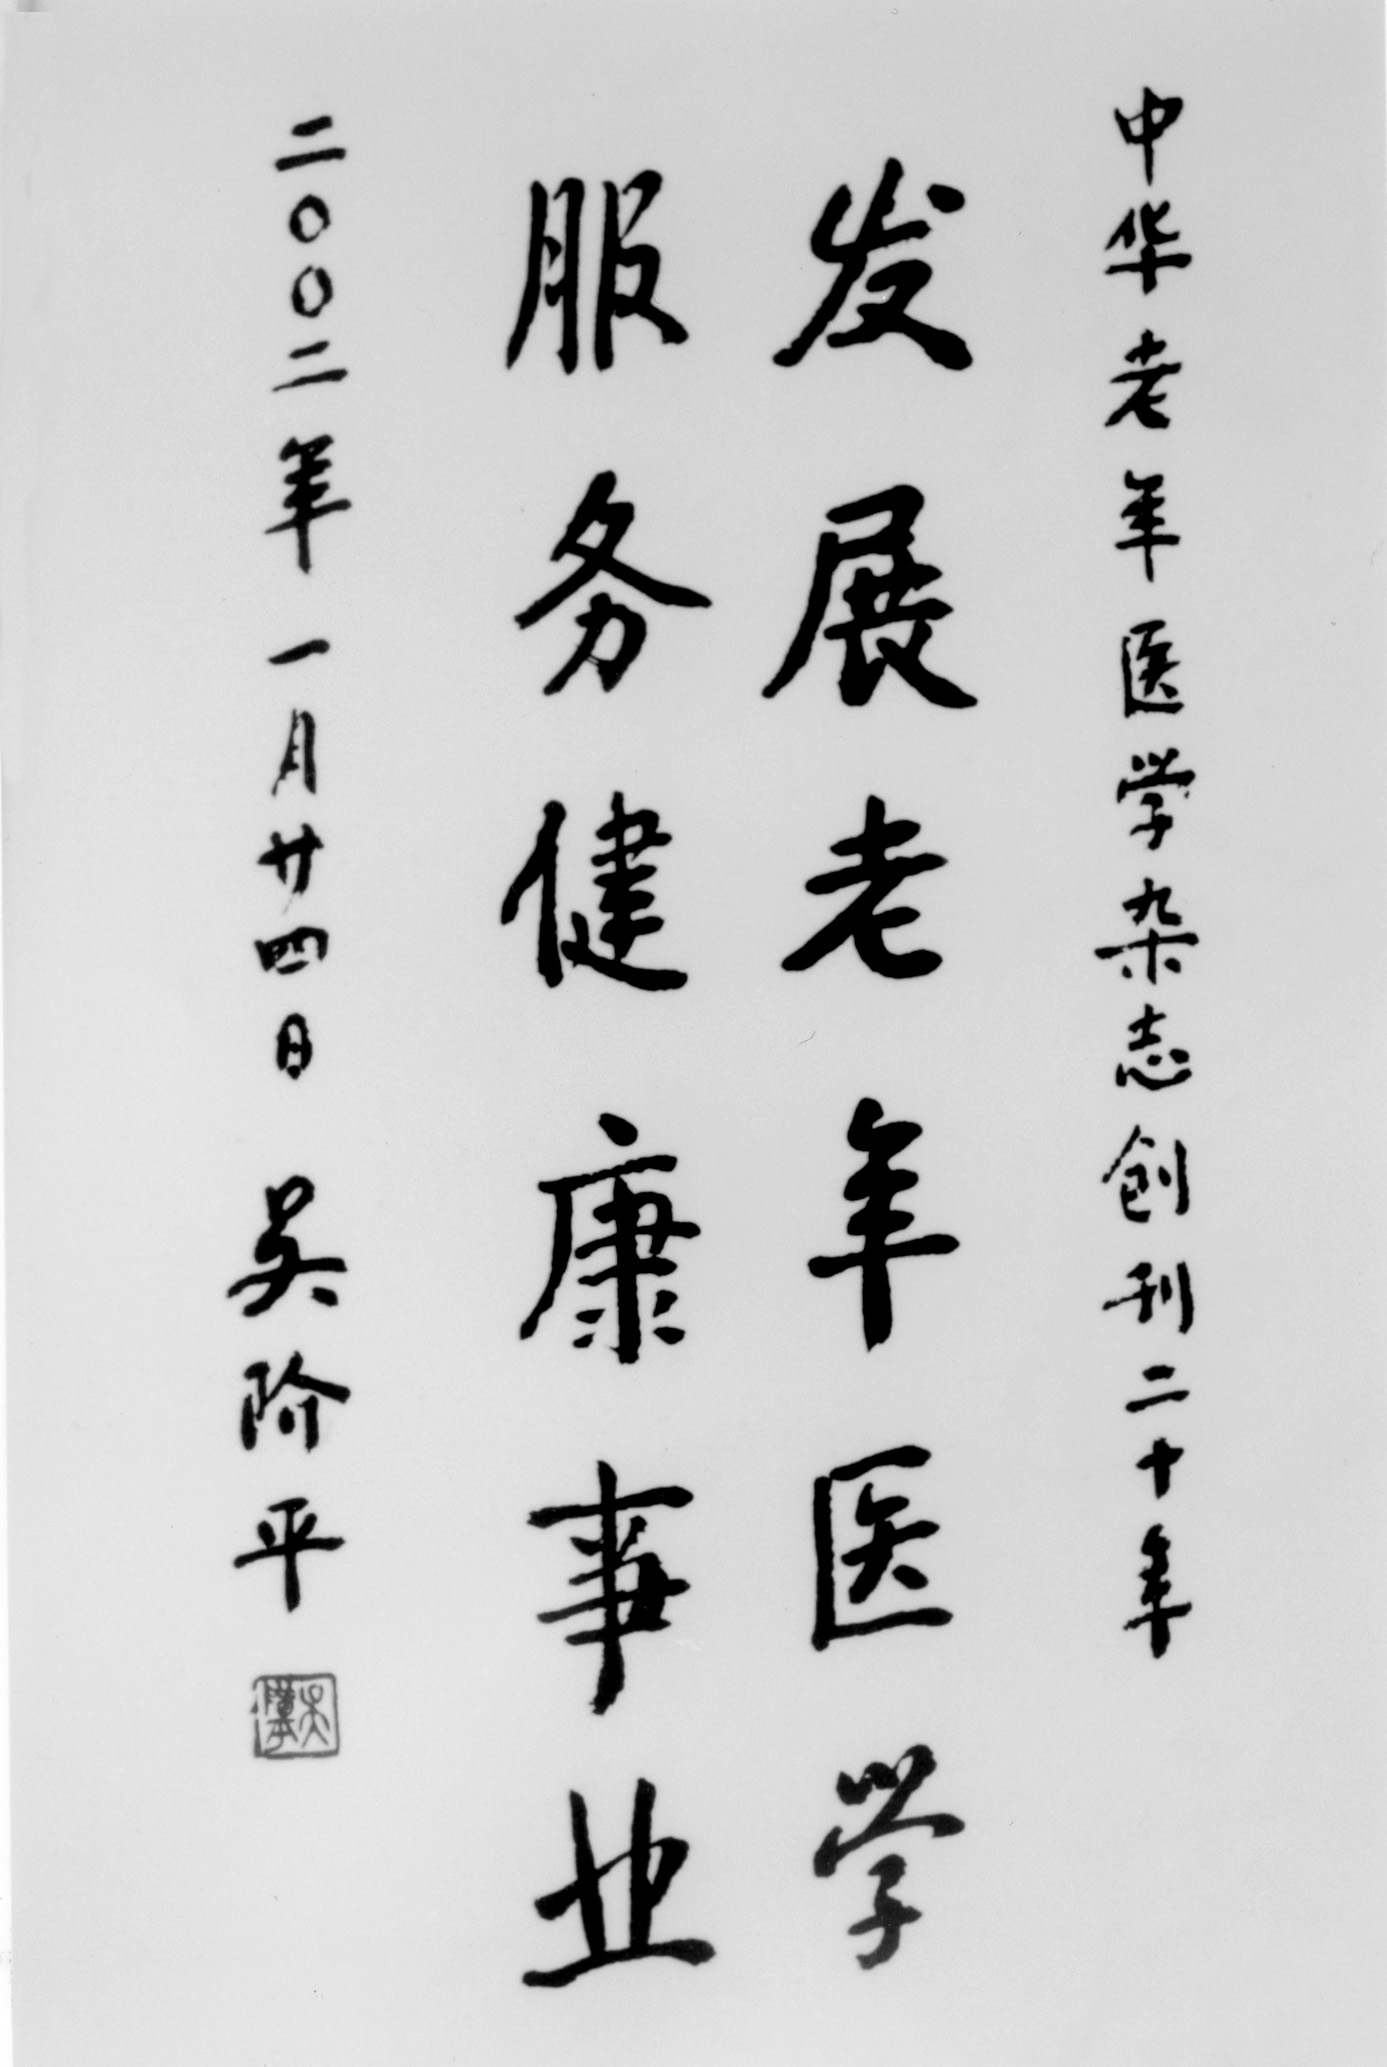 中华老年医学杂志创刊二十年
发展老年医学
服务健康事业
二〇〇二年一月廿四日 吴阶平